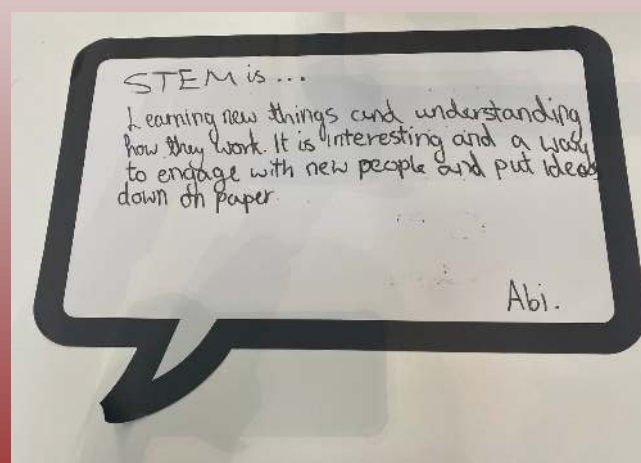 STEM is...
Learning new things and understanding
how they work. It is interesting and a way
to engage with new people and put ideas
down on paper
Abi.